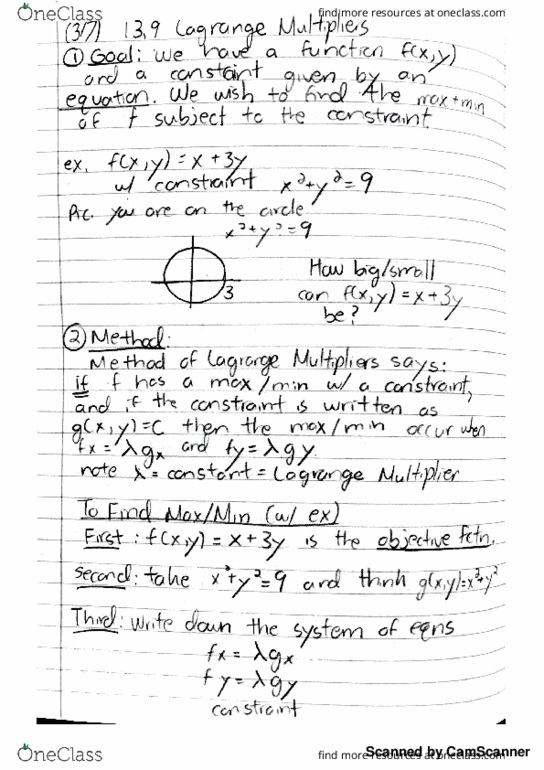 OneClass
find more resources at oneclass.com
(3/7) 13.9 Lagrange Multipliers
① Goal: We have a function f(x,y)
and a constaint given by an
equation. We wish to find the max+min
of f subject to the constraint
ex. f(x,y) = x + 3y
w/ constraint x²+y²=9
Pic. you are on the circle
x²+y²=9
3
How big/small
can f(x,y)=x+3y
be?
② Method:
Method of Lagrange Multipliers says:
if f has a max/min w/ a constraint,
and if the constraint is written as
g(x,y)=C then the max/min occur when
fx=λgx and fy=λgy.
note λ=constant=Lagrange Multiplier
To Find Max/Min (w/ ex)
First: f(x,y)=x+3y is the objective fctn.
Second: take x²+y²=9 and think g(x,y)=x²+y²
Third: Write down the system of eqns
fx=λgx
fy=λgy
constraint
OneClass
find more resources at oneclass.com
Scanned by CamScanner